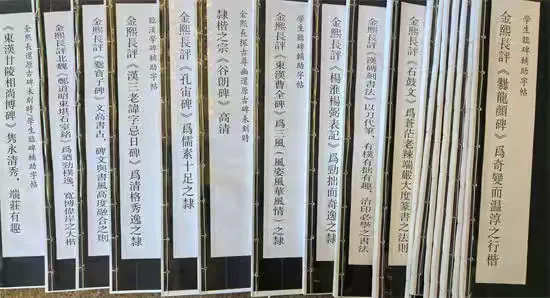 學生臨碑輔助字帖
金熙長評《爨龍顏碑》爲奇變而温淳之行楷
金熙長評《石鼓文》爲蒼茫老辣端嚴大度篆書之法則
學生臨碑輔助字帖
金熙長評《漢磚刻書法》以刀代筆，有樸有拙有趣，治印必學之書法
金熙長評《楊淮楊弼表記》爲勁拙而奇逸之隸
學生臨碑輔助字帖
金熙長評《東漢曹全碑》爲三風（風姿風華風情）之隸
金熙長探古尋幽還原古碑未刻時
隸楷之宗《谷朗碑》高清
金熙長評《孔宙碑》爲儒素十足之隸
臨漢隸碑輔助字帖
金熙長評《漢三老諱字忌日碑》爲清格秀逸之隸
金熙長評《爨寶子碑》文高書古，碑文與書風高度融合之則
金熙長評北魏《鄭道昭東堪石室銘》爲遒勁樸逸，寬博偉岸之大楷
金熙長還原古碑未刻時（學生臨碑輔助字帖
《東漢甘陵相尚博碑》雋永清秀，端莊有趣